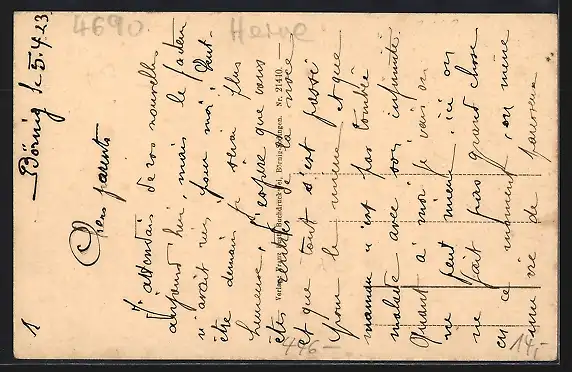 4690
Herne
Börnig le 5.4.23.
Chers parents
J'attendais de vos nouvelles
aujourd'hui, mais le facteur
n'avait rien pour moi. Peut-
être demain je serai plus
heureuse. J'espère que vous
êtes rentrés de la noce
et que tout s'est passé
pour le mieux et que
maman n'est pas tombée
malade avec son infirmité.
Quant à moi je vais on
ne peut mieux, ici on
ne fait pas grand chose
en ce moment, on mène
une vie de paresseux
1
Verlag Buchdruckerei, Herne-Sodingen. Nr. 21410.
446-
14,-